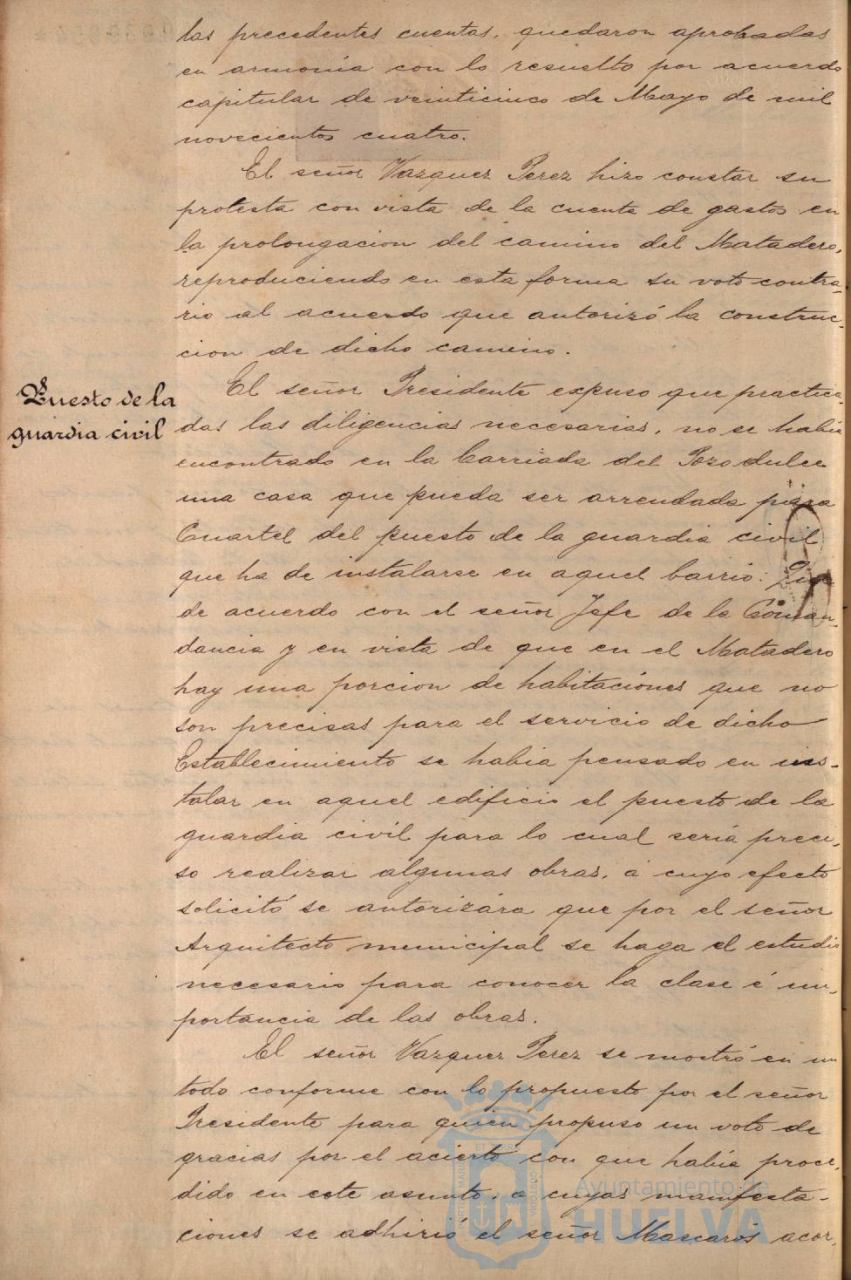 las precedentes cuentas, quedaron aprobadas
en armonía con lo resuelto por acuerdo
capitular de veinticinco de Mayo de mil
novecientos cuatro.
El señor Vazquez Perez hizo constar su
protesta con vista de la cuenta de gastos en
la prolongacion del camino del Matadero,
reproduciendo en esta forma su voto contra-
rio al acuerdo que autorizó la construc-
cion de dicho camino.
Puesto de la
guardia civil
El señor Presidente expuso que practica-
das las diligencias necesarias, no se había
encontrado en la barriada del Pozo dulce
una casa que pueda ser arrendada para
Cuartel del puesto de la guardia civil
que ha de instalarse en aquel barrio: que
de acuerdo con el señor Jefe de la Coman-
dancia y en vista de que en el Matadero
hay una porcion de habitaciones que no
son precisas para el servicio de dicho
Establecimiento se habia pensado en ins-
talar en aquel edificio el puesto de la
guardia civil para lo cual sería preci-
so realizar algunas obras, á cuyo efecto
solicitó se autorizára que por el señor
Arquitecto municipal se haga el estudio
necesario para conocer la clase é im-
portancia de las obras.
El señor Vazquez Perez se mostró en un
todo conforme con lo propuesto por el señor
Presidente para quien propuso un voto de
gracias por el acierto con que había proce-
dido en este asunto, a cuyas manifesta-
ciones se adhirió el señor Mascarós acor-
Ayuntamiento de
HUELVA